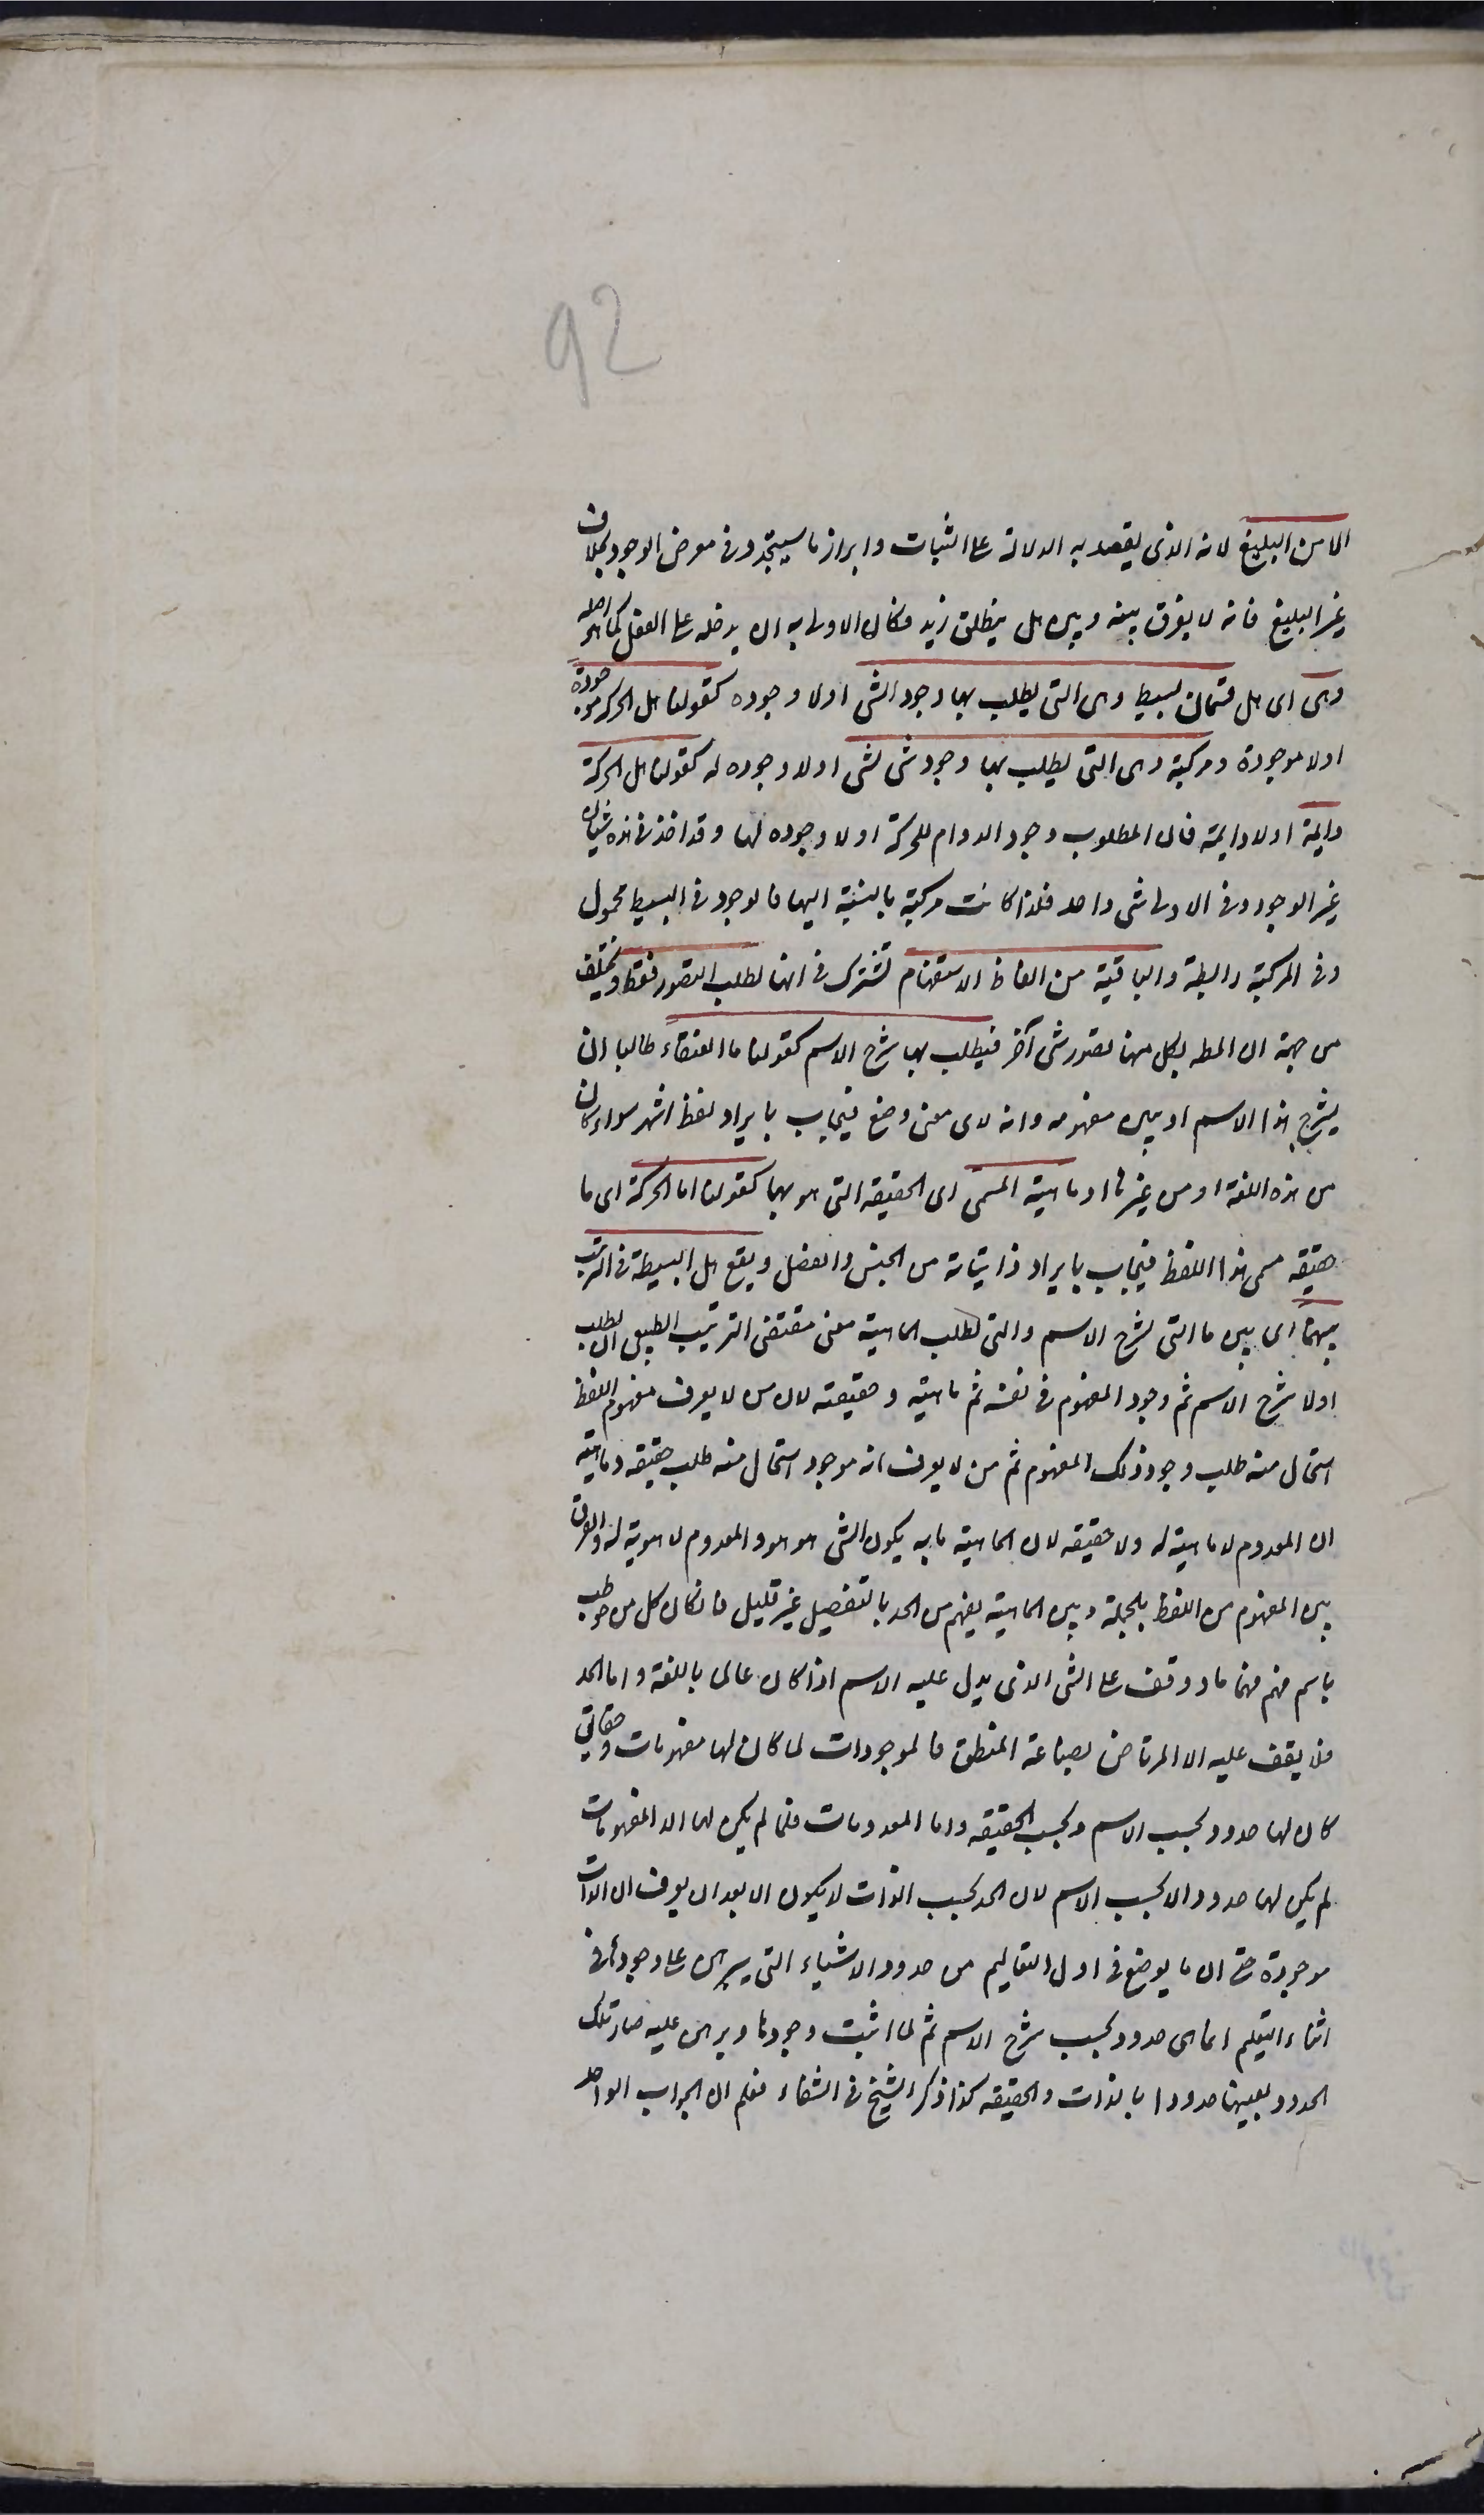 92
الا من البليغ لانه الذى يقصد به الدلالة على الثبات وابراز ما سيتجدد فى معرض الوجود بخلاف
غير البليغ فانه لا يفرق بينه وبين هل ينطلق زيد فكان الاولى به ان يدخله على الفعل كما هو اصله
وهى اى هل قسمان بسيطة وهى التى يطلب بها وجود الشئ اولا وجوده كقولنا هل الحركة موجودة
اولا موجودة ومركبة وهى التى يطلب بها وجود شئ لشئ اولا وجوده له كقولنا هل الحركة
دايمة اولا دايمة فان المطلوب وجود الدوام للحركة اولا وجوده لها وقد اخذ فى هذه شيئان
غير الوجود وفى الاولى شئ واحد فلذا كانت مركبة بالنسبة اليها فالوجود فى البسيطة محمول
وفى المركبة رابطة والباقية من الفاظ الاستفهام تشترك فى انها لطلب التصور فقط وتختلف
من جهة ان المطلوب بكل منها تصور شئ آخر فيطلب بما شرح الاسم كقولنا ما العنقاء طالبا ان
يشرح هذا الاسم او يبين مفهومه وانه لاى معنى وضع فيجاب بايراد لفظ اشهر سواء كان
من هذه اللغة او من غيرها او ماهية المسمى اى الحقيقة التى هو بها كقولنا ما الحركة اى ما
حقيقة مسمى هذا اللفظ فيجاب بايراد ذاتياته من الجنس والفصل ويقع هل البسيطة فى الترتيب
بينهما اى بين ما التى لشرح الاسم والتى لطلب الماهية معنى مقتضى الترتيب الطبيعى ان يطلب
اولا شرح الاسم ثم وجود المفهوم فى نفسه ثم ماهيته وحقيقته لان من لا يعرف مفهوم اللفظ
استحال منه طلب وجود ذلك المفهوم ثم من لا يعرف انه موجود استحال منه طلب حقيقته وماهيته
اذ المعدوم لا ماهية له ولا حقيقة لان الماهية ما به يكون الشئ هو هو والمعدوم لا هوية له والفرق
بين المفهوم من اللفظ بالجملة وبين الماهية يفهم من الحد بالتفصيل غير قليل فان كان كل من خوطب
باسم فهم فهما ما ووقف على الشئ الذى يدل عليه الاسم اذا كان عالما باللغة واما الحد
فلا يقف عليه الا المرتاض بصناعة المنطق فالموجودات لما كان لها مفهومات وحقايق
كان لها حدود بحسب الاسم وبحسب الحقيقة واما المعدومات فلما لم يكن لها الا المفهومات
لم يكن لها حدود الا بحسب الاسم لان الحد بحسب الذات لا يكون الا بعد ان يعرف ان الذات
موجودة حتى ان ما يوضع فى اول التعاليم من حدود الاشياء التى يبرهن على وجودها فى
اثناء التعلم انما هى حدود بحسب شرح الاسم ثم لما اثبت وجودها وبرهن عليه صار تلك
الحدود بعينها حدودا بالذات والحقيقة كذا ذكر الشيخ فى الشفاء فعلم ان الجواب الواحد